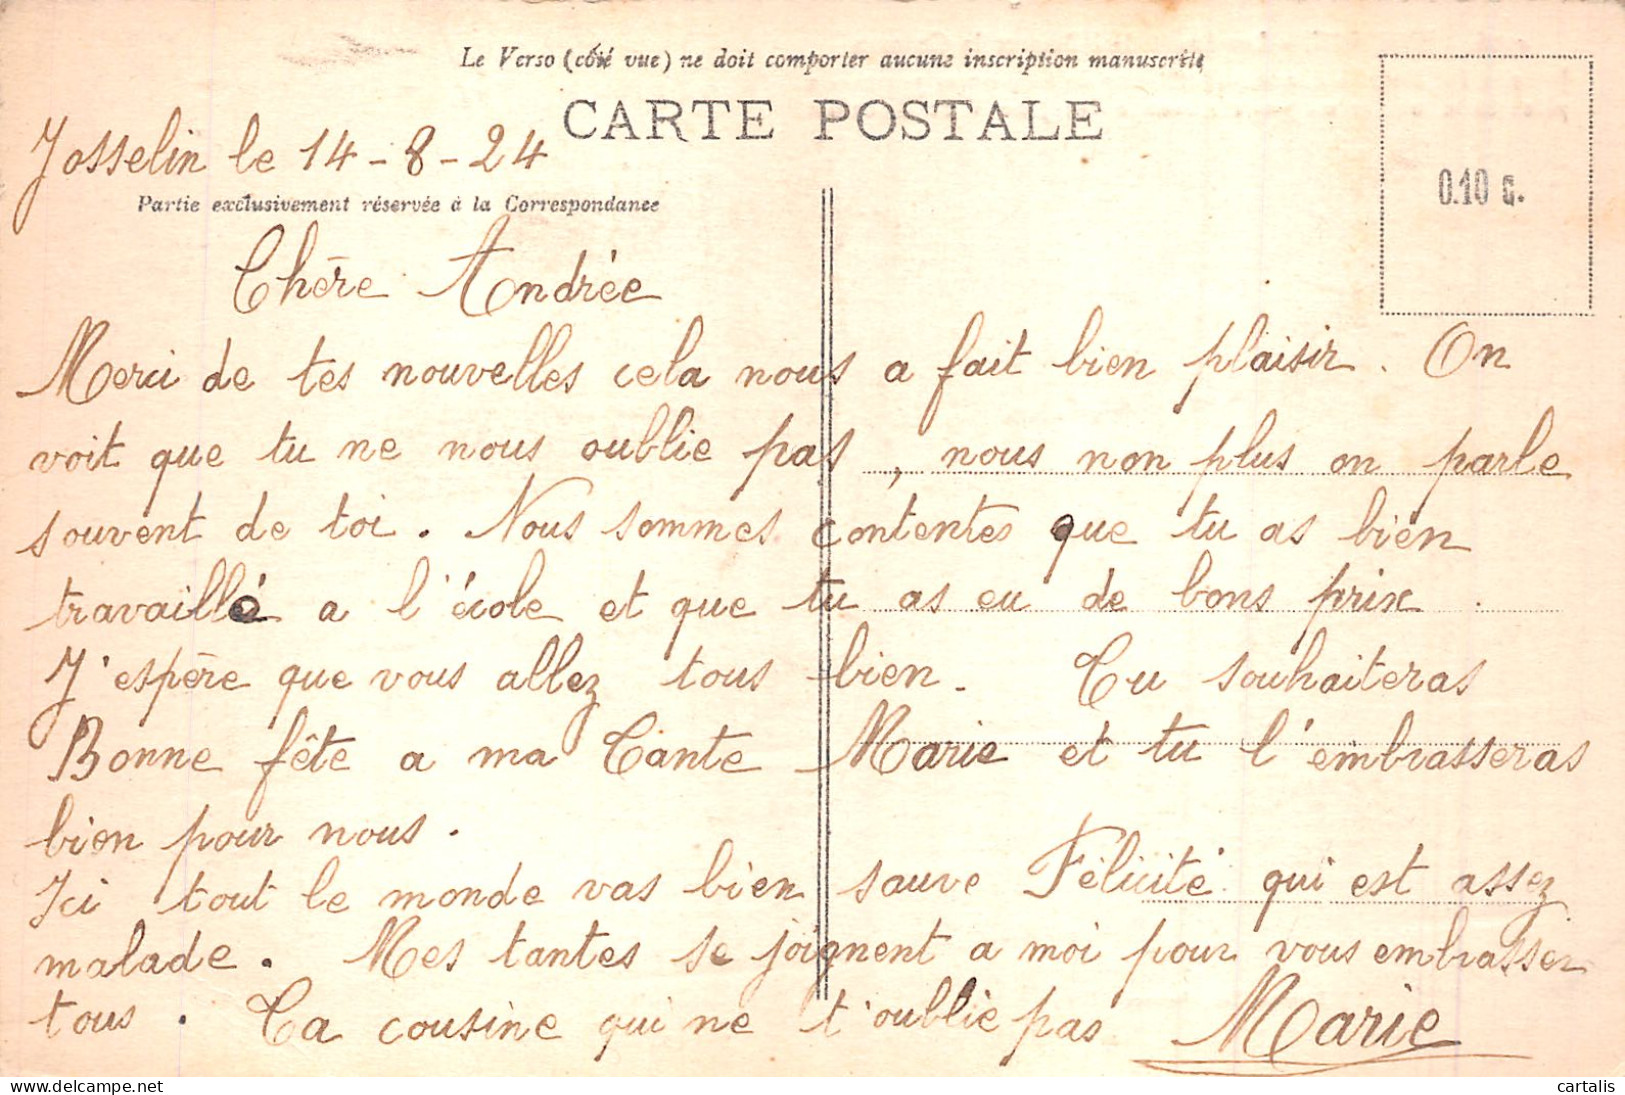 Le Verso (côté vue) ne doit comporter aucune inscription manuscrite
CARTE POSTALE
Josselin le 14-8-24
0.10 c.
Partie exclusivement réservée à la Correspondance
Chère Andrée
Merci de tes nouvelles cela nous a fait bien plaisir. On
voit que tu ne nous oublie pas, nous non plus on parle
souvent de toi. Nous sommes contentes que tu as bien
travaillé a l'école et que tu as eu de bons prix.
J'espère que vous allez tous bien. Tu souhaiteras
Bonne fête a ma Tante Marie et tu l'embrasseras
bien pour nous.
Ici tout le monde vas bien sauve Félicité qui est assez
malade. Mes tantes se joignent a moi pour vous embrasser
tous. Ta cousine qui ne t'oublie pas Marie
cartalis